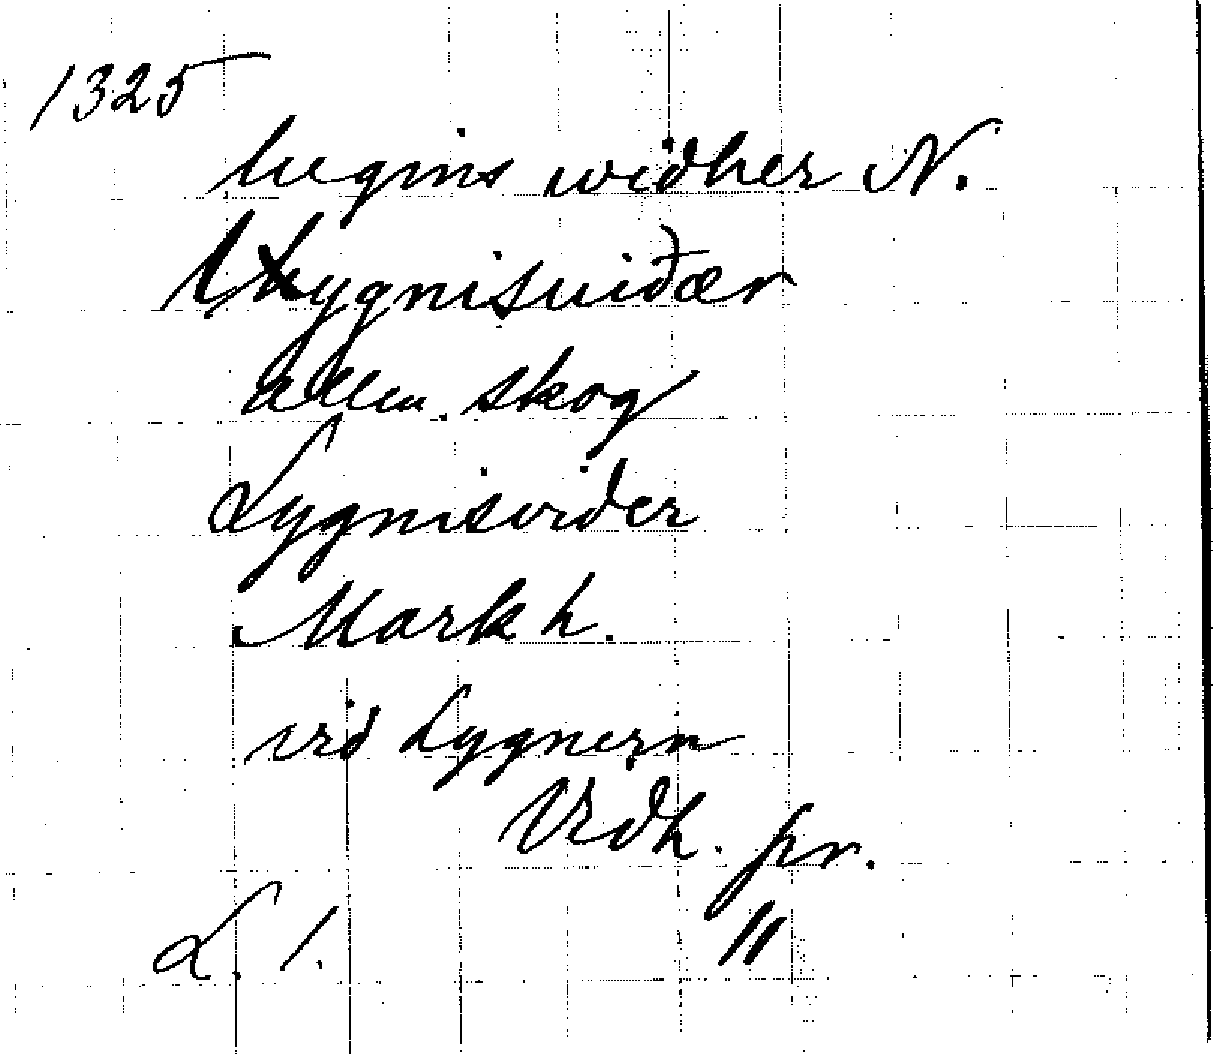 1325
lugins widher N.
Lygnisuiðær
allm. skog
Lygnisvider
Mark h.
vid Lygnern
Vidh. pr.
L. 1. 11